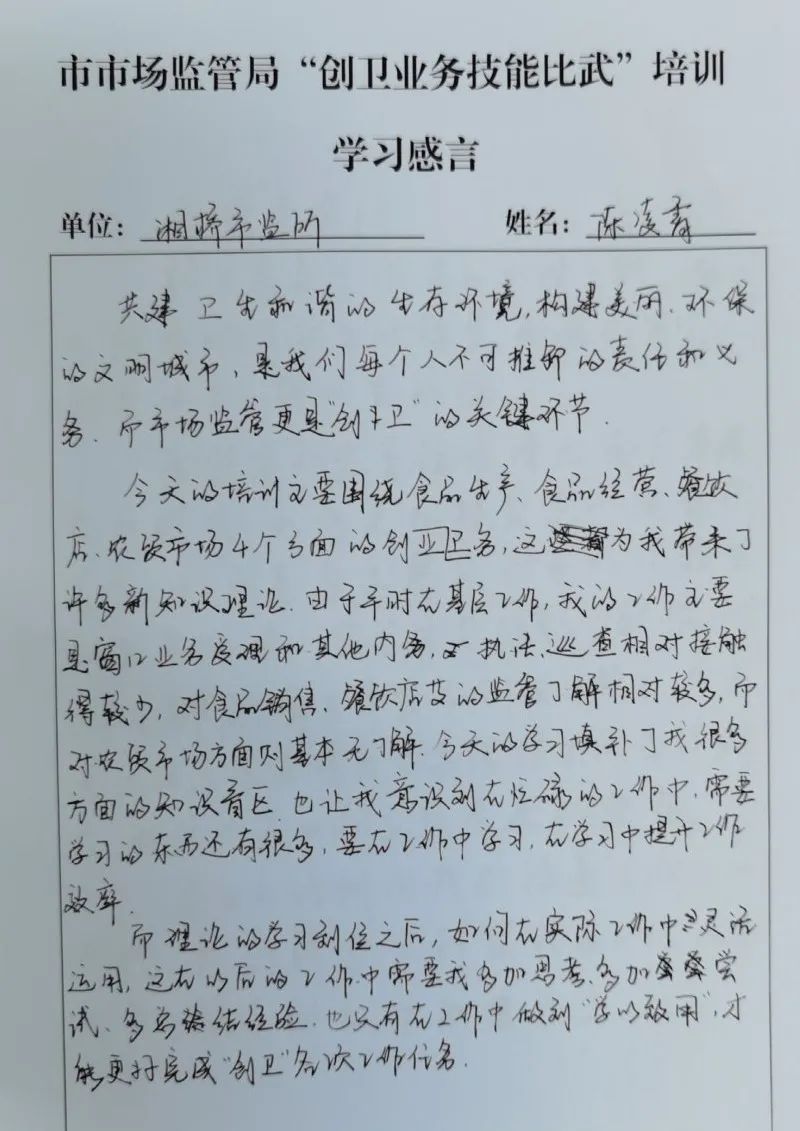 市市场监管局“创卫业务技能比武”培训
学习感言
单位：湘桥市监所 姓名：陈凌
共建卫生和谐的生存环境，构建美丽、环保
的文明城市，是我们每个人不可推卸的责任和义
务。而市场监管更是“创卫”的关键环节。
今天的培训主要围绕食品生产、食品经营、餐饮
店、农贸市场4个方面的创业卫务，这为我带来了
许多新知识理论。由于平时在基层工作，我的工作主要
是窗口业务受理和其他内务，执法、巡查相对接触
得较少，对食品销售、餐饮店的监管了解相对较多，而
对农贸市场方面则基本无了解。今天的学习填补了我很多
方面的知识盲区，也让我意识到在忙碌的工作中，需要
学习的东西还有很多，要在工作中学习，在学习中提升工作
效率。
而理论的学习到位之后，如何在实际工作中灵活
运用，这在以后的工作中需要我多加思考、多加尝
试、多总结经验。也只有在工作中做到“学以致用”，才
能更好完成“创卫”各次工作任务。